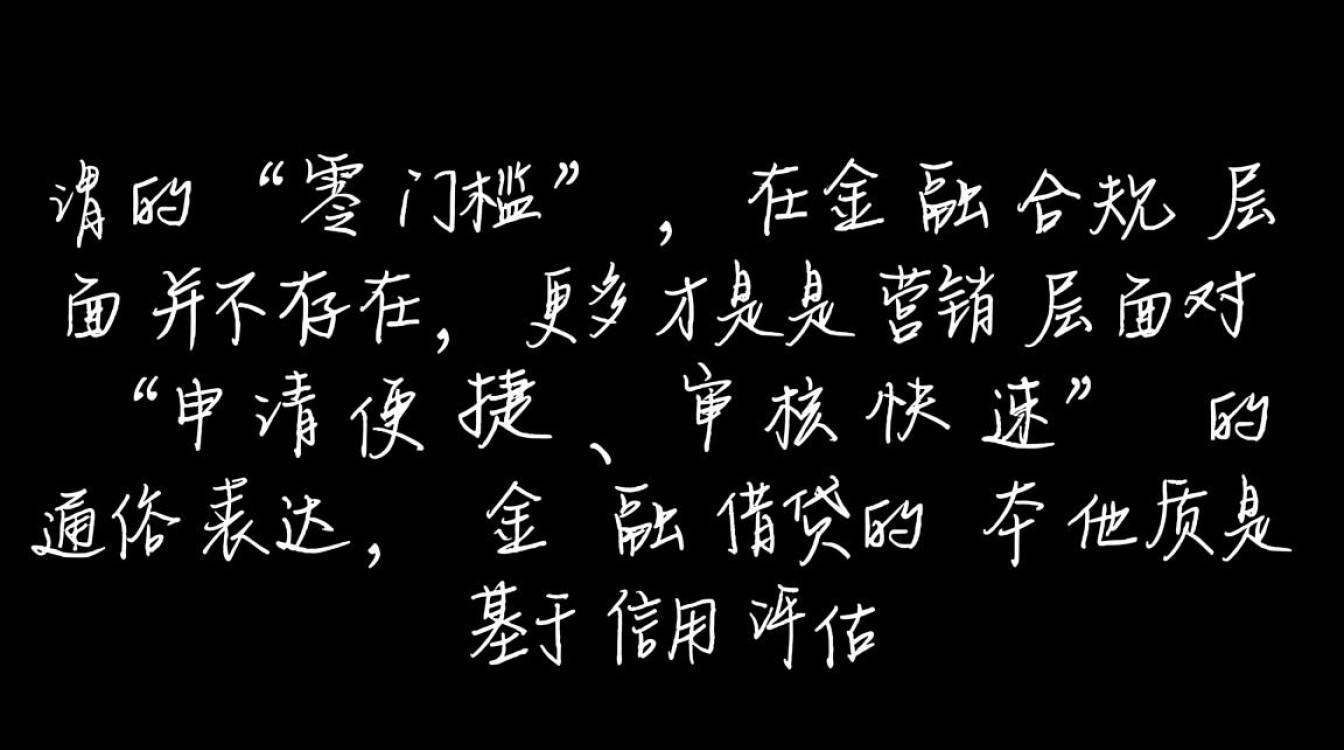 谓的“零门槛”，在金融合规层
面并不存在，更多才是是营销层面对
“申请便捷、审核快速” 的
通俗表达，金融借贷的本他质是
基于信用评估